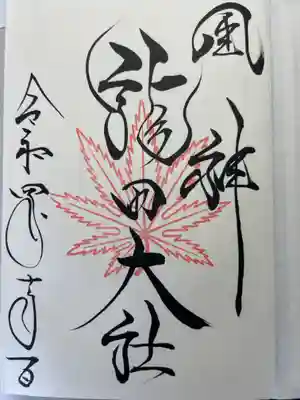 風神
龍田大社
令和四年